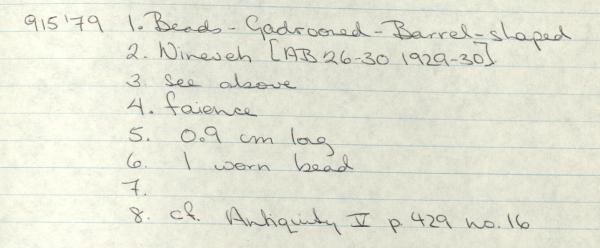 915'79 1. Beads - Gadrooned - Barrel-shaped
2. Nineveh [AB 26-30 1929-30]
3. see above
4. faience
5. 0.9 cm long
6. 1 worn bead
7.
8. cf. Antiquity V p 429 no. 16